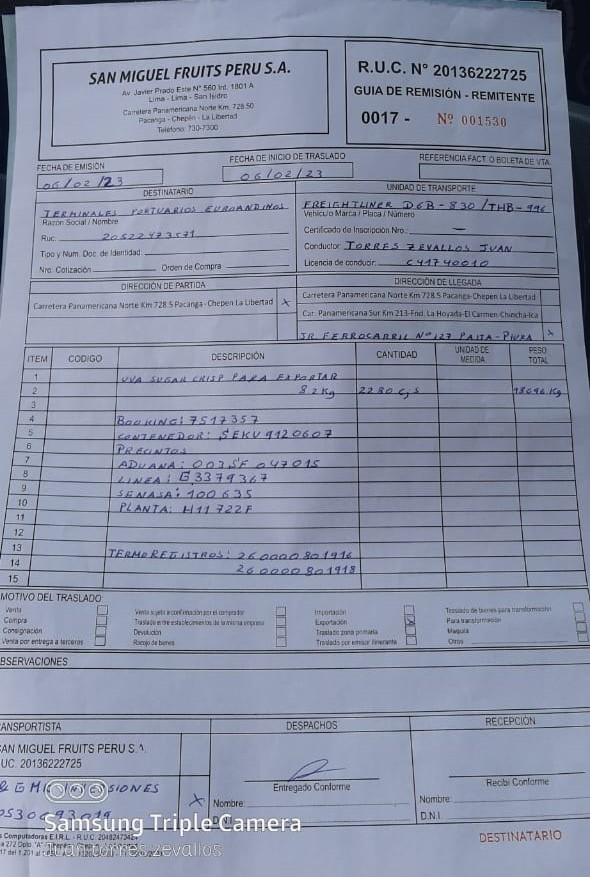 SAN MIGUEL FRUITS PERU S.A.
Av. Javier Prado Este N° 560 Int. 1801 A
Lima - Lima - San Isidro
Carretera Panamericana Norte Km. 728.50
Pacanga - Chepén - La Libertad
Teléfono: 730-7300
R.U.C. N° 20136222725
GUIA DE REMISIÓN - REMITENTE
0017 - Nº 001530
FECHA DE EMISIÓN
06/02/23
FECHA DE INICIO DE TRASLADO
06/02/23
REFERENCIA FACT. O BOLETA DE VTA.
DESTINATARIO
TERMINALES PORTUARIOS EUROANDINOS
Razón Social / Nombre
Ruc: 20522473571
Tipo y Num. Doc. de Identidad:
Nro. Cotización Orden de Compra
UNIDAD DE TRANSPORTE
FREIGHTLINER D6B-830/THB-996
Vehículo Marca / Placa / Número
Certificado de Inscripción Nro.: —
Conductor: TORRES ZEVALLOS JUAN
Licencia de conducir: C41740010
DIRECCIÓN DE PARTIDA
Carretera Panamericana Norte Km 728.5 Pacanga-Chepen La Libertad X
DIRECCIÓN DE LLEGADA
Carretera Panamericana Norte Km 728.5 Pacanga-Chepen La Libertad
Car. Panamericana Sur Km 213-Fnd. La Hoyada-El Carmen Chincha-Ica
JR FERROCARRIL N° 127 PAITA-PIURA X
ITEM CODIGO DESCRIPCIÓN CANTIDAD UNIDAD DE MEDIDA PESO TOTAL
1 UVA SUGAR CRISP PARA EXPORTAR
2 8.2 Kg 2280 CJS 18696 Kg
3
4 BOOKING: 7517357
5 CONTENEDOR: SEKU 9120607
6 PRECINTOS
7 ADUANA: 003SF 047015
8 LINEA: G3379367
9 SENASA: 100635
10 PLANTA: H11722F
11
12
13 TERMOREGISTROS: 260000801916
14 260000801918
15
MOTIVO DEL TRASLADO:
Venta
Compra
Consignación
Venta por entrega a terceros
Venta sujeta a confirmación por el comprador
Traslado entre establecimientos de la misma empresa
Devolución
Recojo de bienes
Importación
Exportación X
Traslado zona primaria
Traslado por emisor itinerante
Traslado de bienes para transformación
Para transformación
Maquila
Otros
BSERVACIONES
ANSPORTISTA
AN MIGUEL FRUITS PERU S.A.
UC. 20136222725
X
DESPACHOS
Entregado Conforme
Nombre:
D.N.I.
RECEPCIÓN
Recibí Conforme
Nombre:
D.N.I.
DESTINATARIO
Samsung Triple Camera